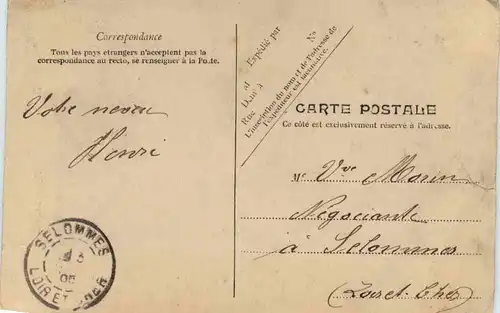 Correspondance
Tous les pays étrangers n'acceptent pas la
correspondance au recto, se renseigner à la Poste.
Votre neveu
Henri
SELOMMES
05
LOIR ET CHER
No
Expédié par
M
Dem
Rue
L'inscription du nom et de l'adresse de
l'expéditeur est facultative.
CARTE POSTALE
Ce côté est exclusivement réservé à l'adresse.
Me Vve Morin
Négociante
à Selommes
(Loir et Cher)